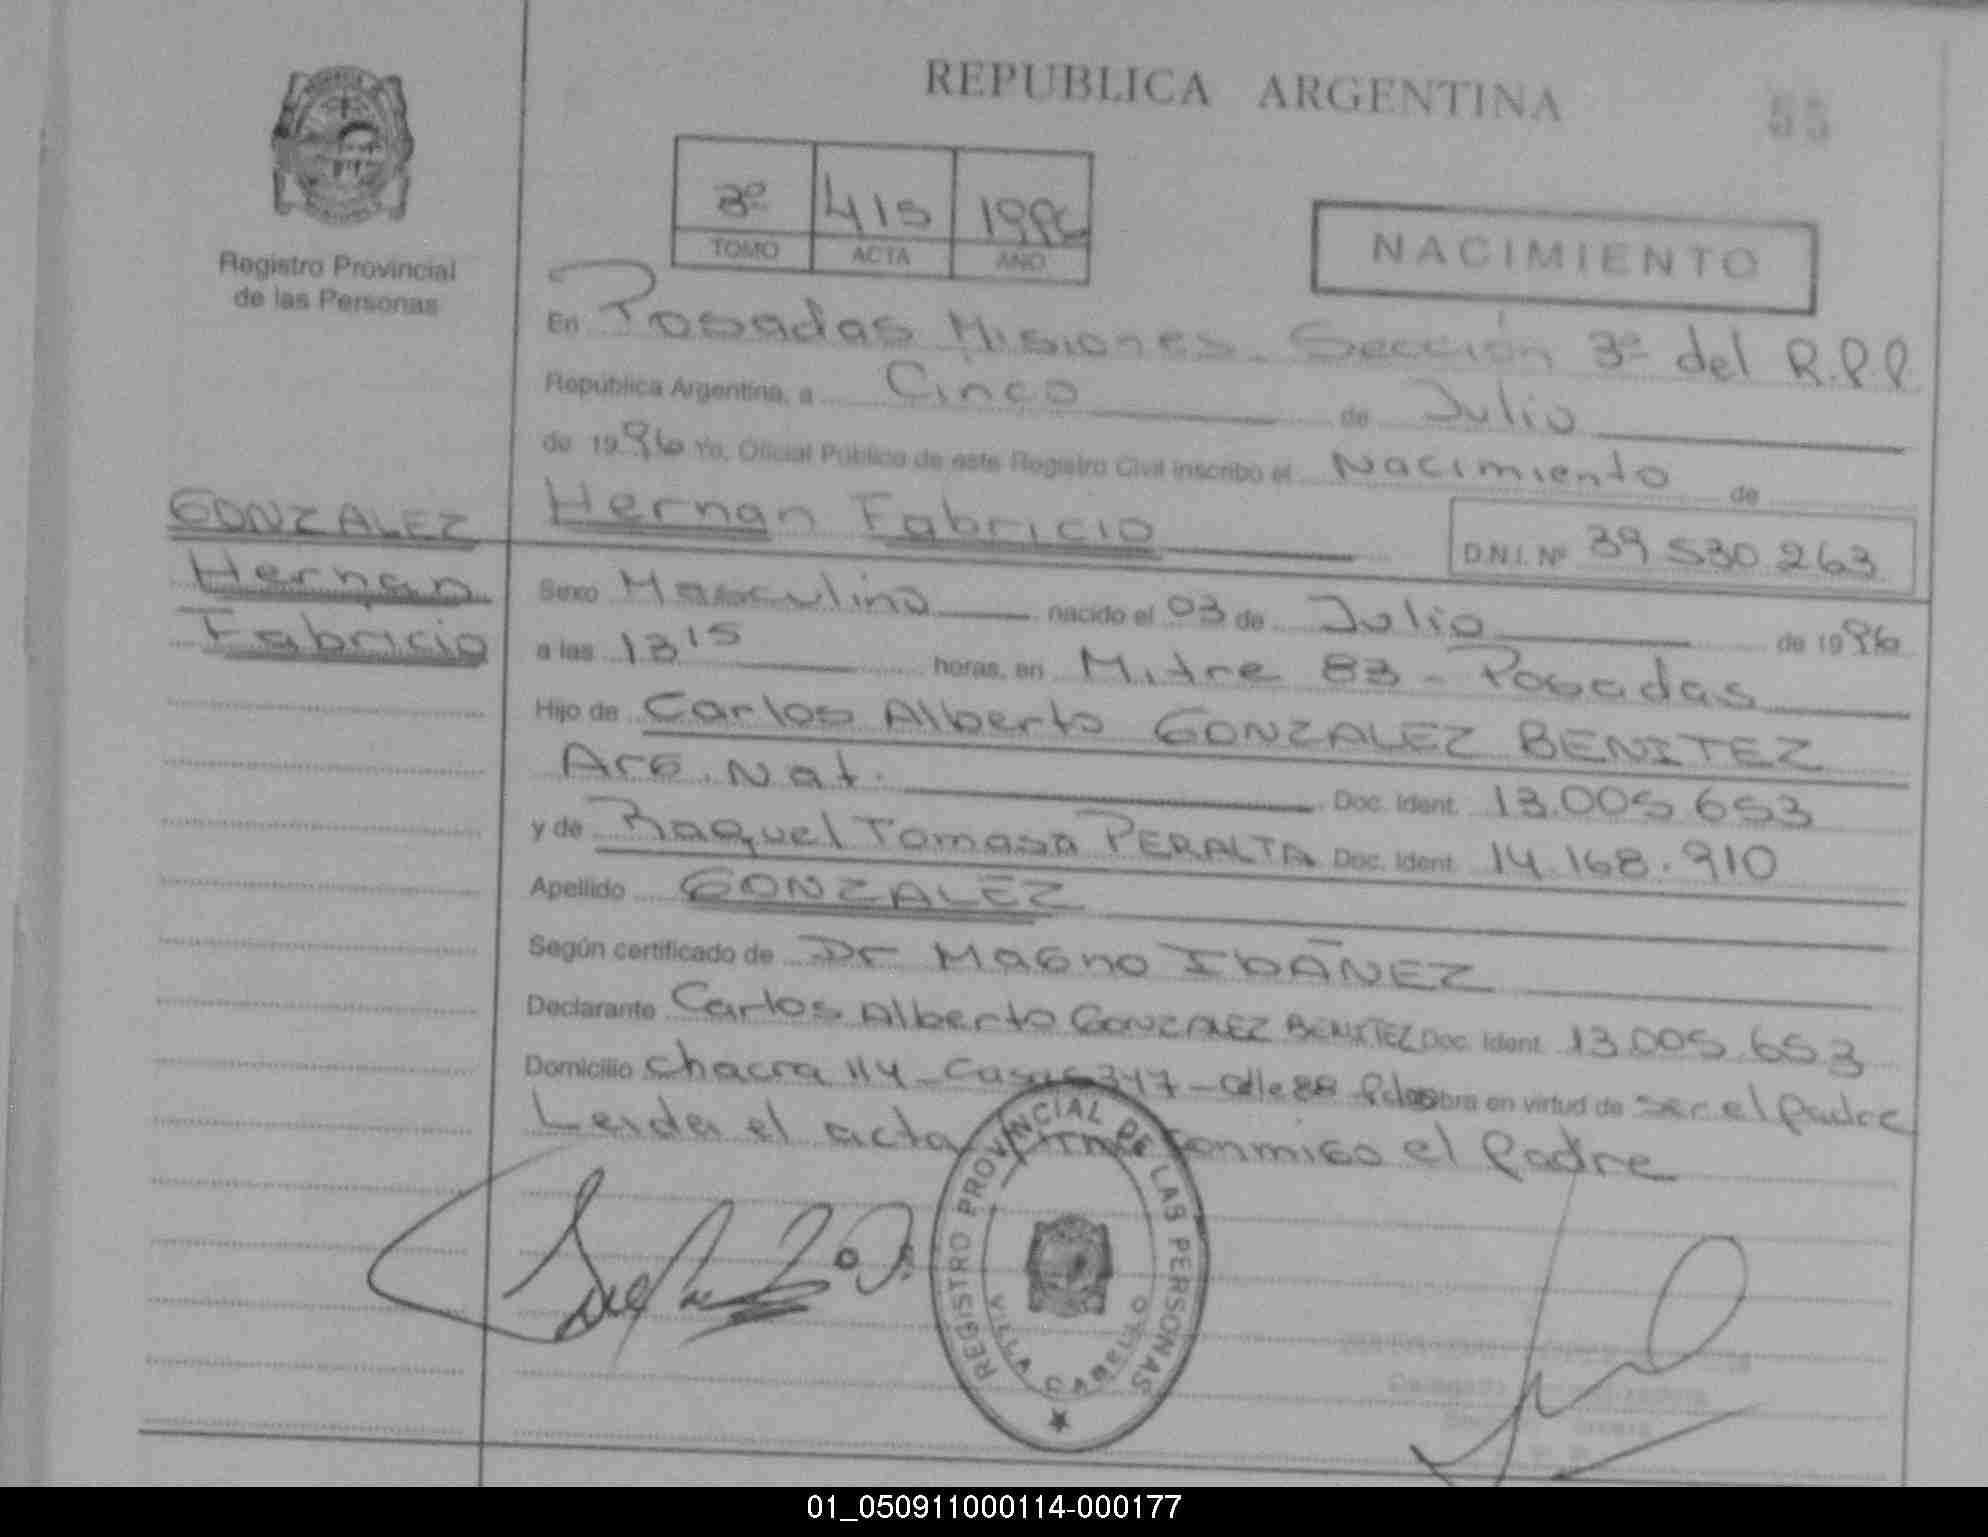 REPUBLICA ARGENTINA
55
3º 415 1996
TOMO ACTA AÑO
NACIMIENTO
Registro Provincial
de las Personas
En Posadas Misiones. Sección 3º del R.P.P
República Argentina, a Cinco de Julio
de 1996 Yo, Oficial Público de este Registro Civil inscribo el Nacimiento de
GONZALEZ
Hernan
Fabricio
Hernan Fabricio D.N.I. Nº 39 530 263
Sexo Masculino nacido el 03 de Julio de 1996
a las 13 15 horas, en Mitre 83 - Posadas
Hijo de Carlos Alberto GONZALEZ BENITEZ
Arg. Nat. Doc. Ident. 13.005.653
y de Raquel Tomasa PERALTA Doc. Ident. 14.168.910
Apellido GONZALEZ
Según certificado de Dr Magno IbAÑEZ
Declarante Carlos Alberto GONZALEZ BENITEZ Doc. Ident. 13.005.653
Domicilio Chacra 114 - Casa 347 - Calle 88 Pdas obra en virtud de ser el padre
Leida el acta firma conmigo el padre
REGISTRO PROVINCIAL DE LAS PERSONAS
VILLA CABELLO
01_050911000114-000177